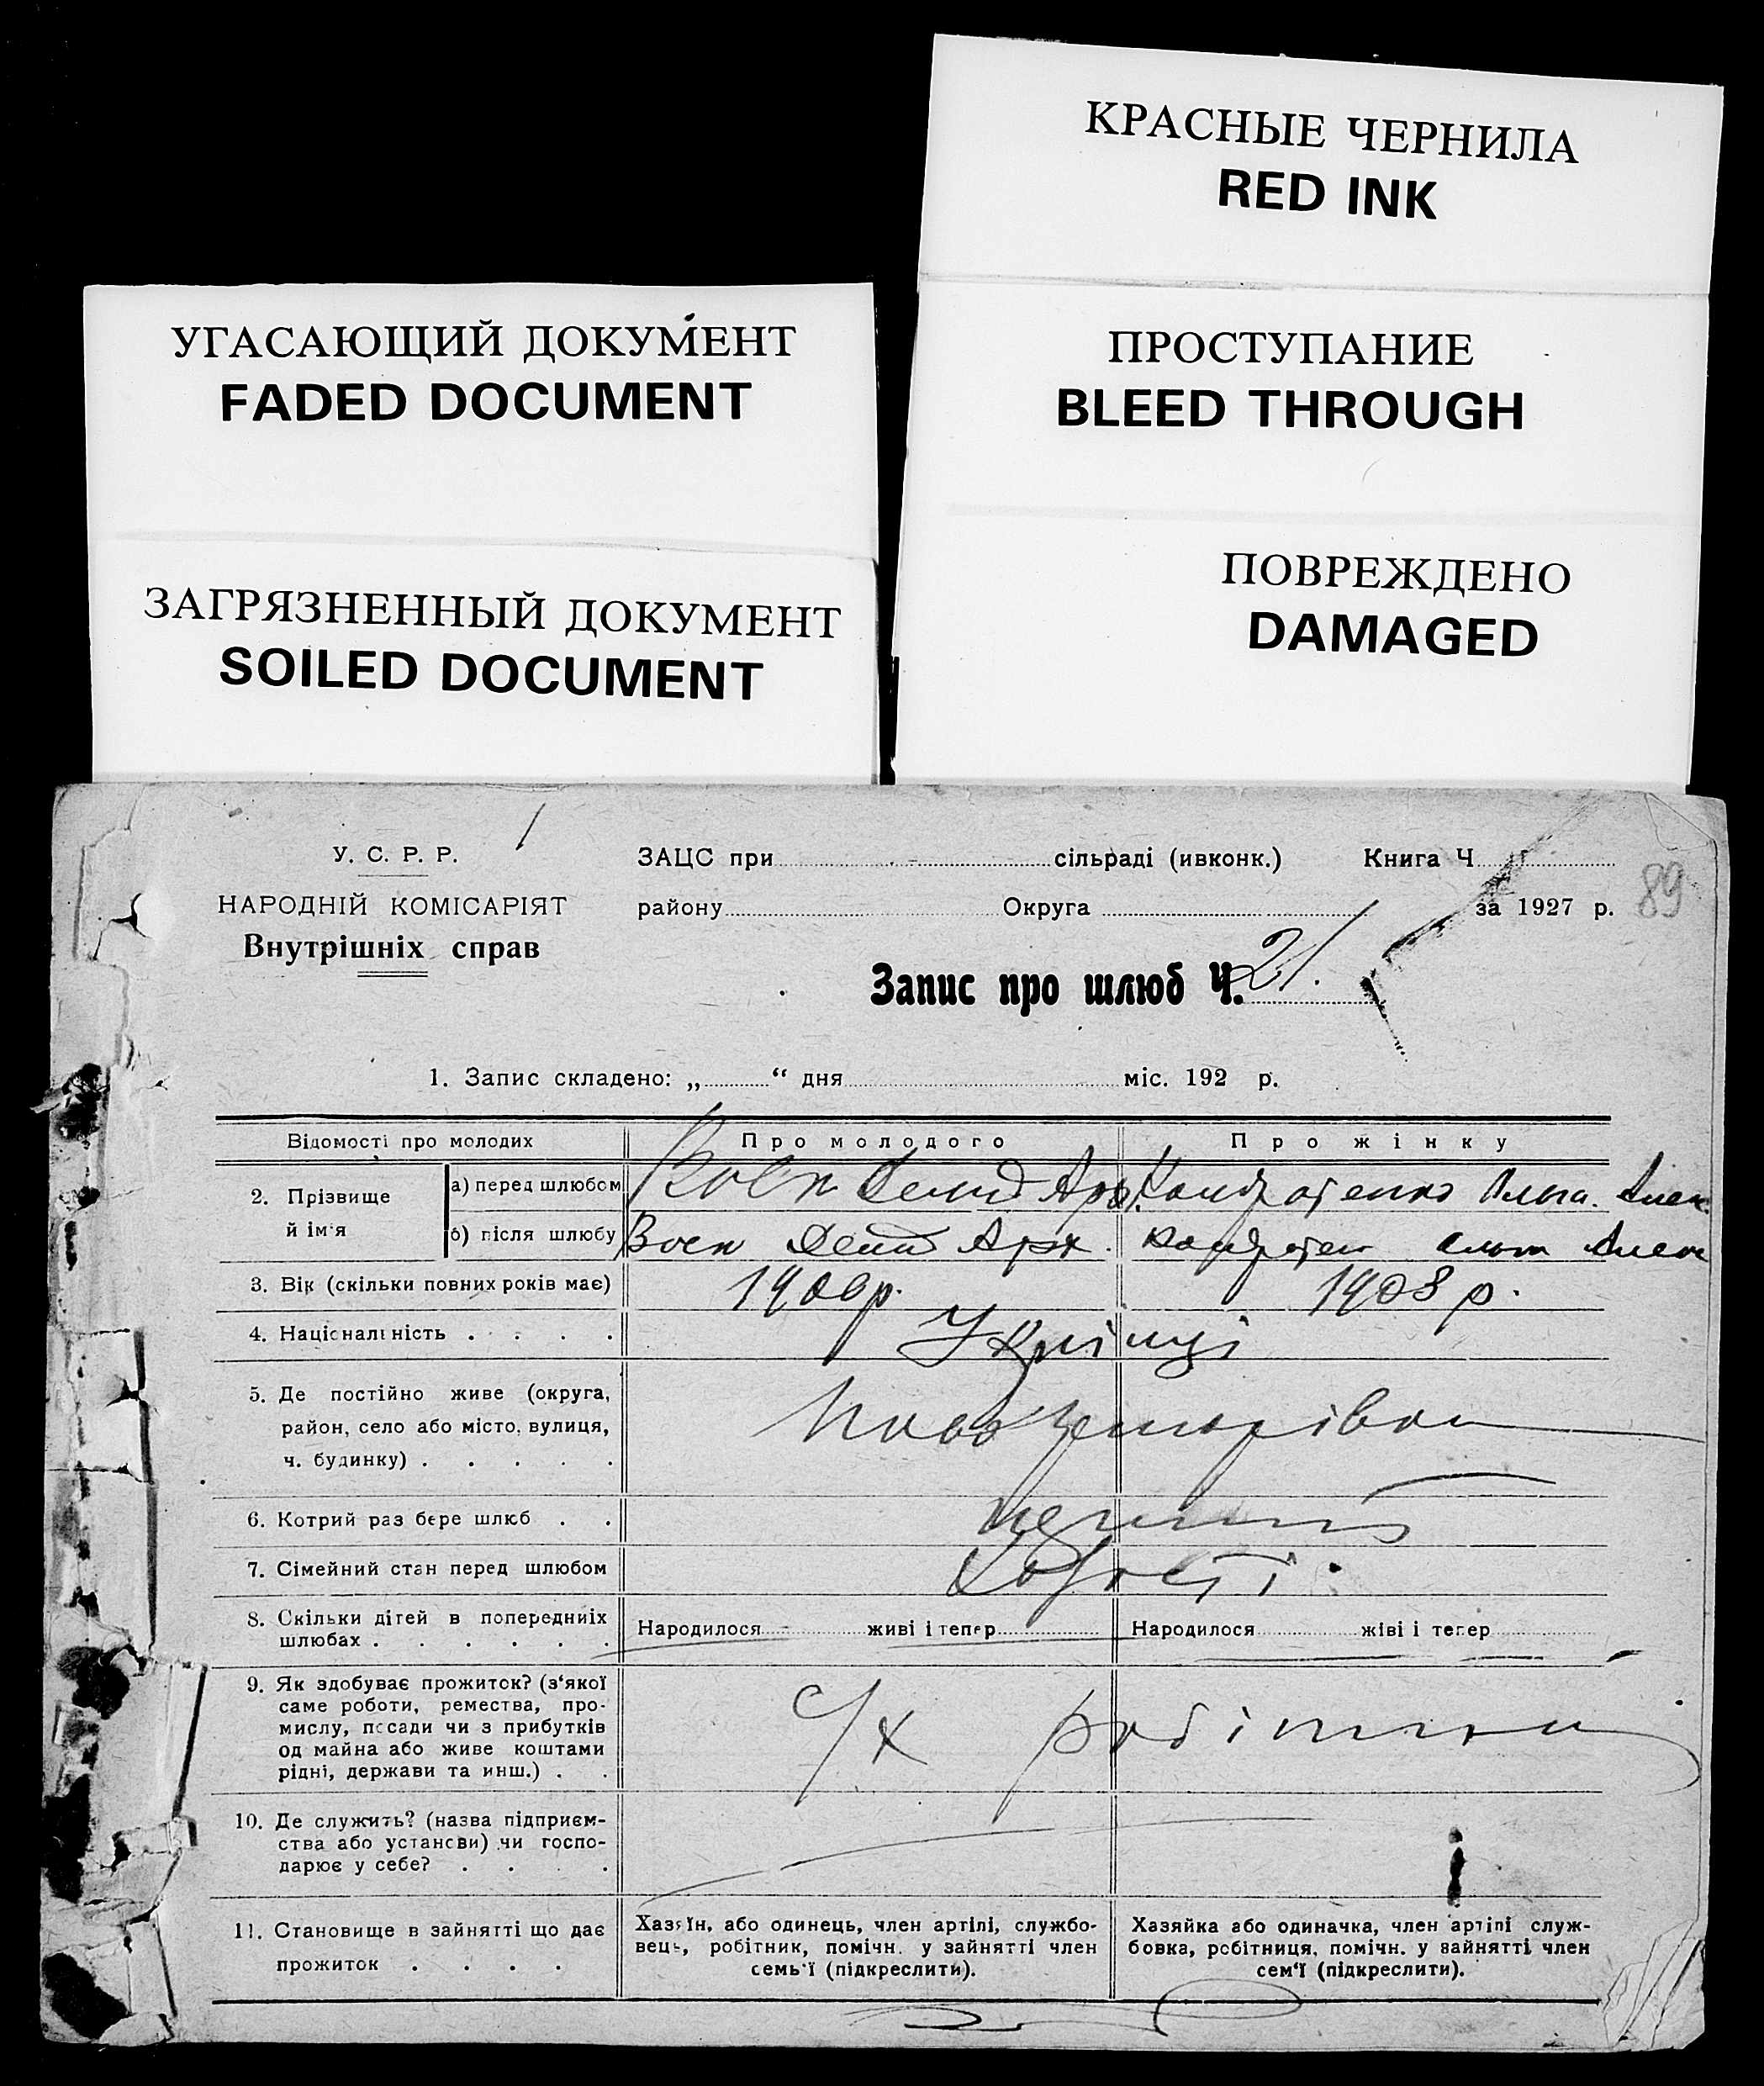 КРАСНЫЕ ЧЕРНИЛА
RED INK
УГАСАЮЩИЙ ДОКУМЕНТ
FADED DOCUMENT
ПРОСТУПАНИЕ
BLEED THROUGH
ЗАГРЯЗНЕННЫЙ ДОКУМЕНТ
SOILED DOCUMENT
ПОВРЕЖДЕНО
DAMAGED
У. С. Р. Р.
НАРОДНІЙ КОМІСАРІЯТ
Внутрішніх справ
ЗАЦС при сільраді (ивконк.) Книга Ч
району Округа за 1927 р.
89
Запис про шлюб Ч. 21.
1. Запис складено: „ “ дня міс. 192 р.
Відомості про молодих Про молодого Про жінку
2. Прізвище й ім'я
а) перед шлюбом Демид Арх. Кондратенко Ольга. Алек.
б) після шлюбу Воєн Демид Арх. Ольга Алек
3. Вік (скільки повних років має) 1906р. 1908 р.
4. Національність . . . . Українці
5. Де постійно живе (округа,
район, село або місто, вулиця,
ч. будинку) . . . . .
6. Котрий раз бере шлюб . . перший
7. Сімейний стан перед шлюбом холості.
8. Скільки дітей в попередниіх
шлюбах . . . . . .
Народилося живі і тепер Народилося жіві і тепер
9. Як здобуває прожиток? (з'якої
саме роботи, ремества, про-
мислу, посади чи з прибутків
од майна або живе коштами
рідні, держави та инш.) . .
с/х
10. Де служить? (назва підприєм-
ства або установи) чи госпо-
дарює у себе? . . . .
11. Становище в зайнятті що дає
прожиток . . . .
Хазяїн, або одинець, член артілі, службо-
вець, робітник, помічн. у зайнятті член
семь'ї (підкреслити).
Хазяйка або одиначка, член артілі служ-
бовка, робітниця, помічн. у зайнятті член
сем'ї (підкреслити).